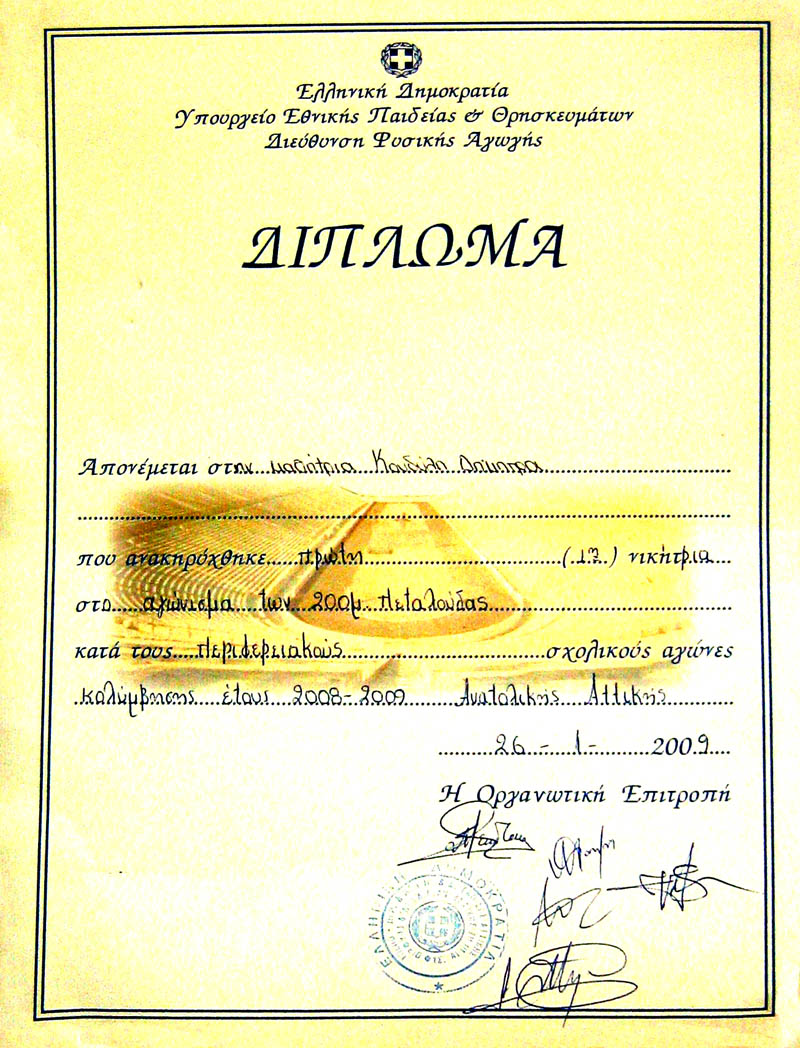 Ελληνική Δημοκρατία
Υπουργείο Εθνικής Παιδείας & Θρησκευμάτων
Διεύθυνση Φυσικής Αγωγής
ΔΙΠΛΩΜΑ
Απονέμεται στην μαθήτρια Κανδύλη Δήμητρα
που ανακηρύχθηκε πρώτη (1η) νικήτρια
στο αγώνισμα των 200μ. πεταλούδας
κατά τους περιφερειακούς σχολικούς αγώνες
κολύμβησης έτους 2008-2009 Ανατολικής Αττικής
26 - 1 - 2009
Η Οργανωτική Επιτροπή
ΕΛΛΗΝΙΚΗ ΔΗΜΟΚΡΑΤΙΑ